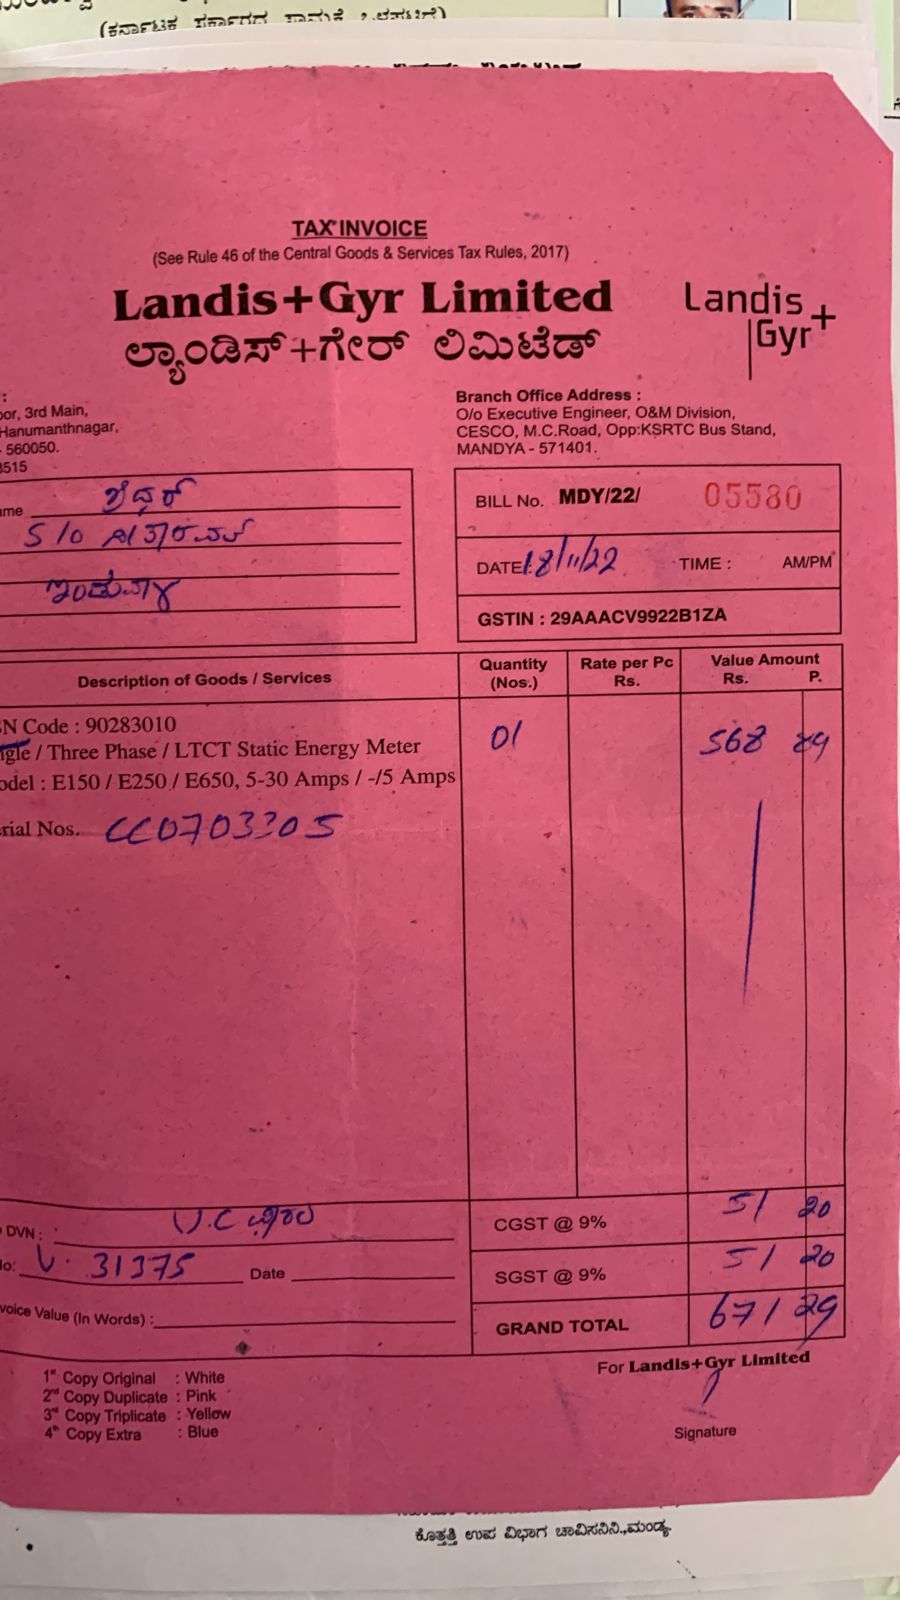 (ಕರ್ನಾಟಕ ಸರ್ಕಾರದ
TAX INVOICE
(See Rule 46 of the Central Goods & Services Tax Rules, 2017)
Landis+Gyr Limited
ಲ್ಯಾಂಡಿಸ್+ಗೇರ್ ಲಿಮಿಟೆಡ್
Landis
Gyr+
:
oor, 3rd Main,
Hanumanthnagar,
- 560050.
3515
Branch Office Address :
O/o Executive Engineer, O&M Division,
CESCO, M.C.Road, Opp:KSRTC Bus Stand,
MANDYA - 571401.
ame
S/o
BILL No. MDY/22/ 05580
DATE 18/11/22 TIME : AM/PM
GSTIN : 29AAACV9922B1ZA
Description of Goods / Services
Quantity (Nos.)
Rate per Pc Rs.
Value Amount Rs. P.
SN Code : 90283010
ngle / Three Phase / LTCT Static Energy Meter 01 568 89
odel : E150 / E250 / E650, 5-30 Amps / -/5 Amps
rial Nos. CC0703305
DVN : V.C
CGST @ 9% 51 20
lo: V. 31375 Date
SGST @ 9% 51 20
voice Value (In Words) :
GRAND TOTAL 671 29
1st Copy Original : White
2nd Copy Duplicate : Pink
3rd Copy Triplicate : Yellow
4th Copy Extra : Blue
For Landis+Gyr Limited
Signature
ಕೊತ್ತತ್ತಿ ಉಪ ವಿಭಾಗ ಚಾವಿಸನಿನಿ.,ಮಂಡ್ಯ.